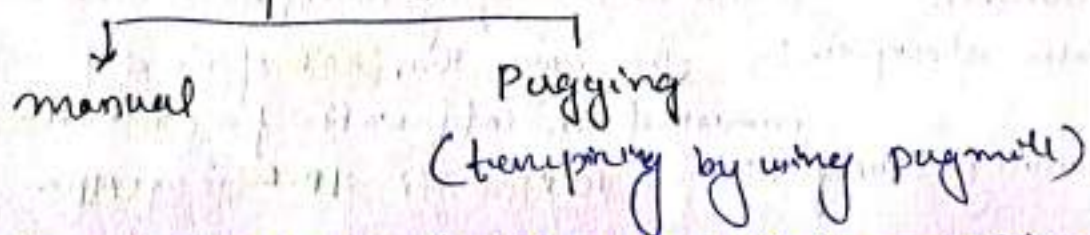 manual Pugging
(tempring by using pugmill)